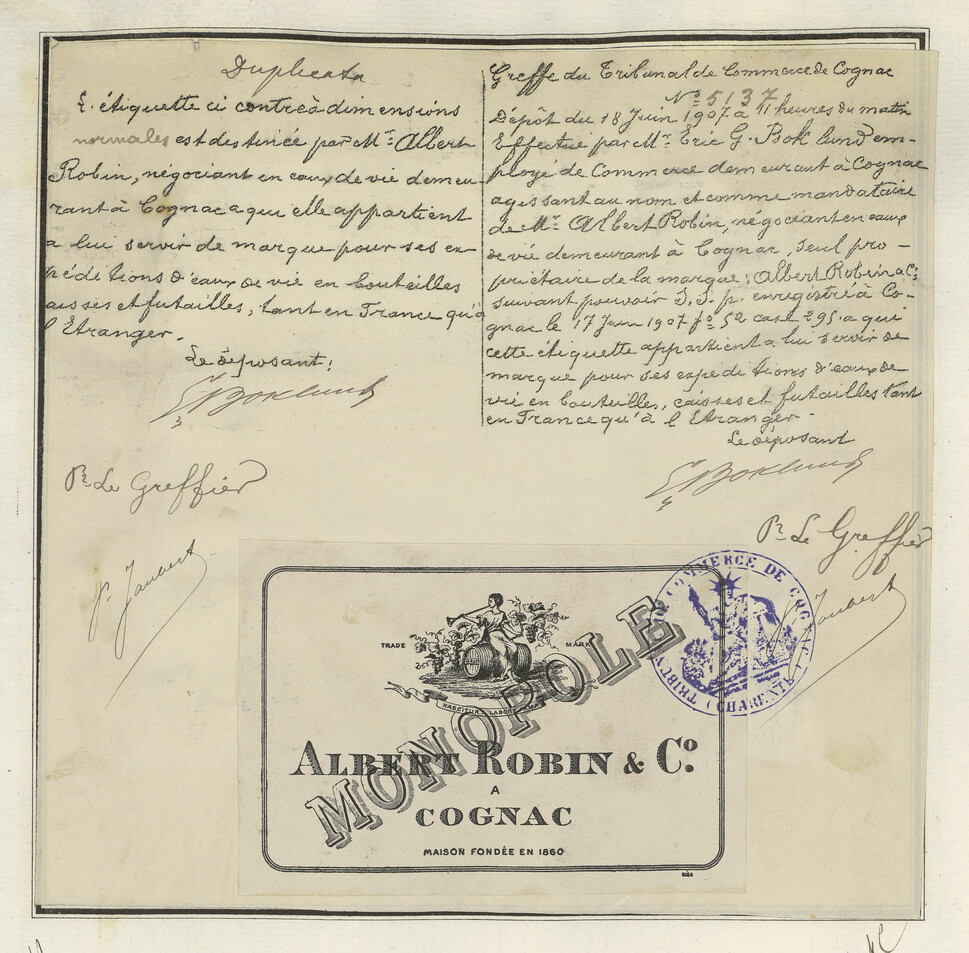 Duplicata
L'étiquette ci contre à dimensions
normales est destinée par Mr Albert
Robin, négociant en eaux de vie demeu
rant à Cognac a qui elle appartient
a lui servir de marque pour ses ex
péditions d'eaux de vie en bouteilles
caisses et futailles, tant en France qu'à
l'Etranger.
Le déposant:
E G Boklund
Pr Le Greffier
P. Jaubert
Greffe du Tribunal de Commerce de Cognac
No 5137
Dépôt du 18 Juin 1907 à 11 heures du matin
Effectué par Mr Eric G. Boklund em-
ployé de Commerce demeurant à Cognac
agissant au nom et comme mandataire
de Mr Albert Robin, négociant en eaux
de vie demeurant à Cognac, seul pro-
priétaire de la marque: Albert Robin & Co
suivant pouvoir S.S.p. enregistré à Co-
gnac le 17 Juin 1907 fo 52 case 295 a qui
cette étiquette appartient a lui servir de
marque pour ses expeditions d'eaux de
vie en bouteilles, caisses et futailles tant
en France qu'à l'Etranger.
Le déposant
E G Boklund
Pr Le Greffier
P. Jaubert
TRIBAL DE COMMERCE DE COGNAC
(CHARENTE)
TRADE MARK
NASCITUR LABORE
MONOPOLE
ALBERT ROBIN & Co.
A
COGNAC
MAISON FONDÉE EN 1860